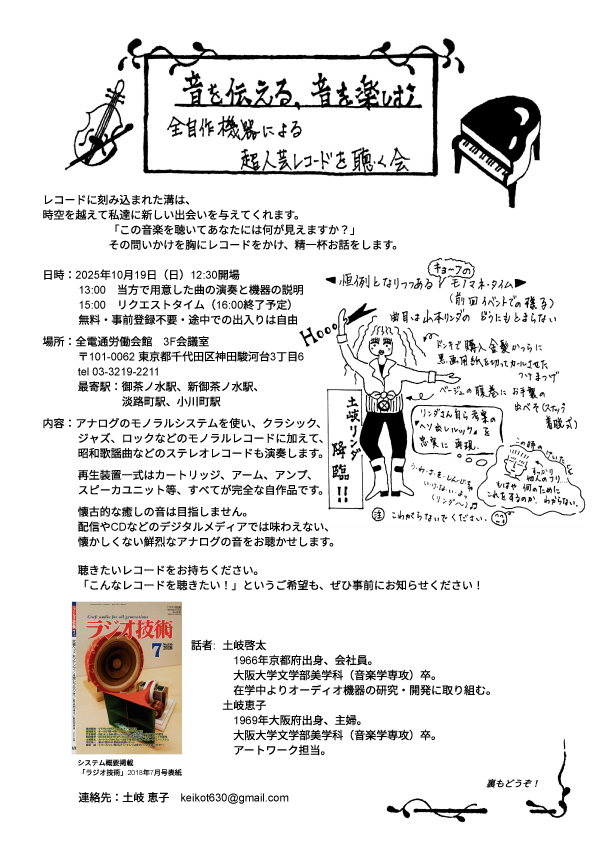 音を伝える、音を楽しむ
全自作機器による
超人芸レコードを聴く会
レコードに刻み込まれた溝は、
時空を越えて私達に新しい出会いを与えてくれます。
「この音楽を聴いてあなたには何が見えますか?」
その問いかけを胸にレコードをかけ、精一杯お話をします。
日時：2025年10月19日（日）12:30開場
13:00　当方で用意した曲の演奏と機器の説明
15:00　リクエストタイム（16:00終了予定）
無料・事前登録不要・途中での出入りは自由
場所：全電通労働会館　3F会議室
〒101-0062 東京都千代田区神田駿河台3丁目6
tel 03-3219-2211
最寄駅：御茶ノ水駅、新御茶ノ水駅、
淡路町駅、小川町駅
内容：アナログのモノラルシステムを使い、クラシック、
ジャズ、ロックなどのモノラルレコードに加えて、
昭和歌謡曲などのステレオレコードも演奏します。
再生装置一式はカートリッジ、アーム、アンプ、
スピーカユニット等、すべてが完全な自作品です。
懐古的な癒しの音は目指しません。
配信やCDなどのデジタルメディアでは味わえない、
懐かしくない鮮烈なアナログの音をお聴かせします。
聴きたいレコードをお持ちください。
「こんなレコードを聴きたい！」というご希望も、ぜひ事前にお知らせください！
キョーフの
恒例となりつつある モノマネ・タイム
（前回イベントでの様子）
曲目は山本リンダの どうにもとまらない
Hooo
ドンキで購入 金髪かつらに
黒画用紙を切ってカールさせた
つけまつげ
ベージュの腹巻に お手製の
出べそ（スナップ
着脱式）
土岐リンダ
降臨!!
リンダさん自ら考案の
“ヘソ出しルック”を
忠実に再現
う・わ・さ・を・しんじちゃ
いけないよ
（リンダ〜）♫
この時の
けいた
すっかり
他人のフリ…
もはや 何のために
これをするのか、わからない。
注 こわがらないでください。
ラジオ技術
7
システム概要掲載
「ラジオ技術」2018年7月号表紙
話者:　土岐啓太
1966年京都府出身、会社員。
大阪大学文学部美学科（音楽学専攻）卒。
在学中よりオーディオ機器の研究・開発に取り組む。
土岐恵子
1969年大阪府出身、主婦。
大阪大学文学部美学科（音楽学専攻）卒。
アートワーク担当。
裏もどうぞ！
連絡先：土岐 恵子　keikot630@gmail.com